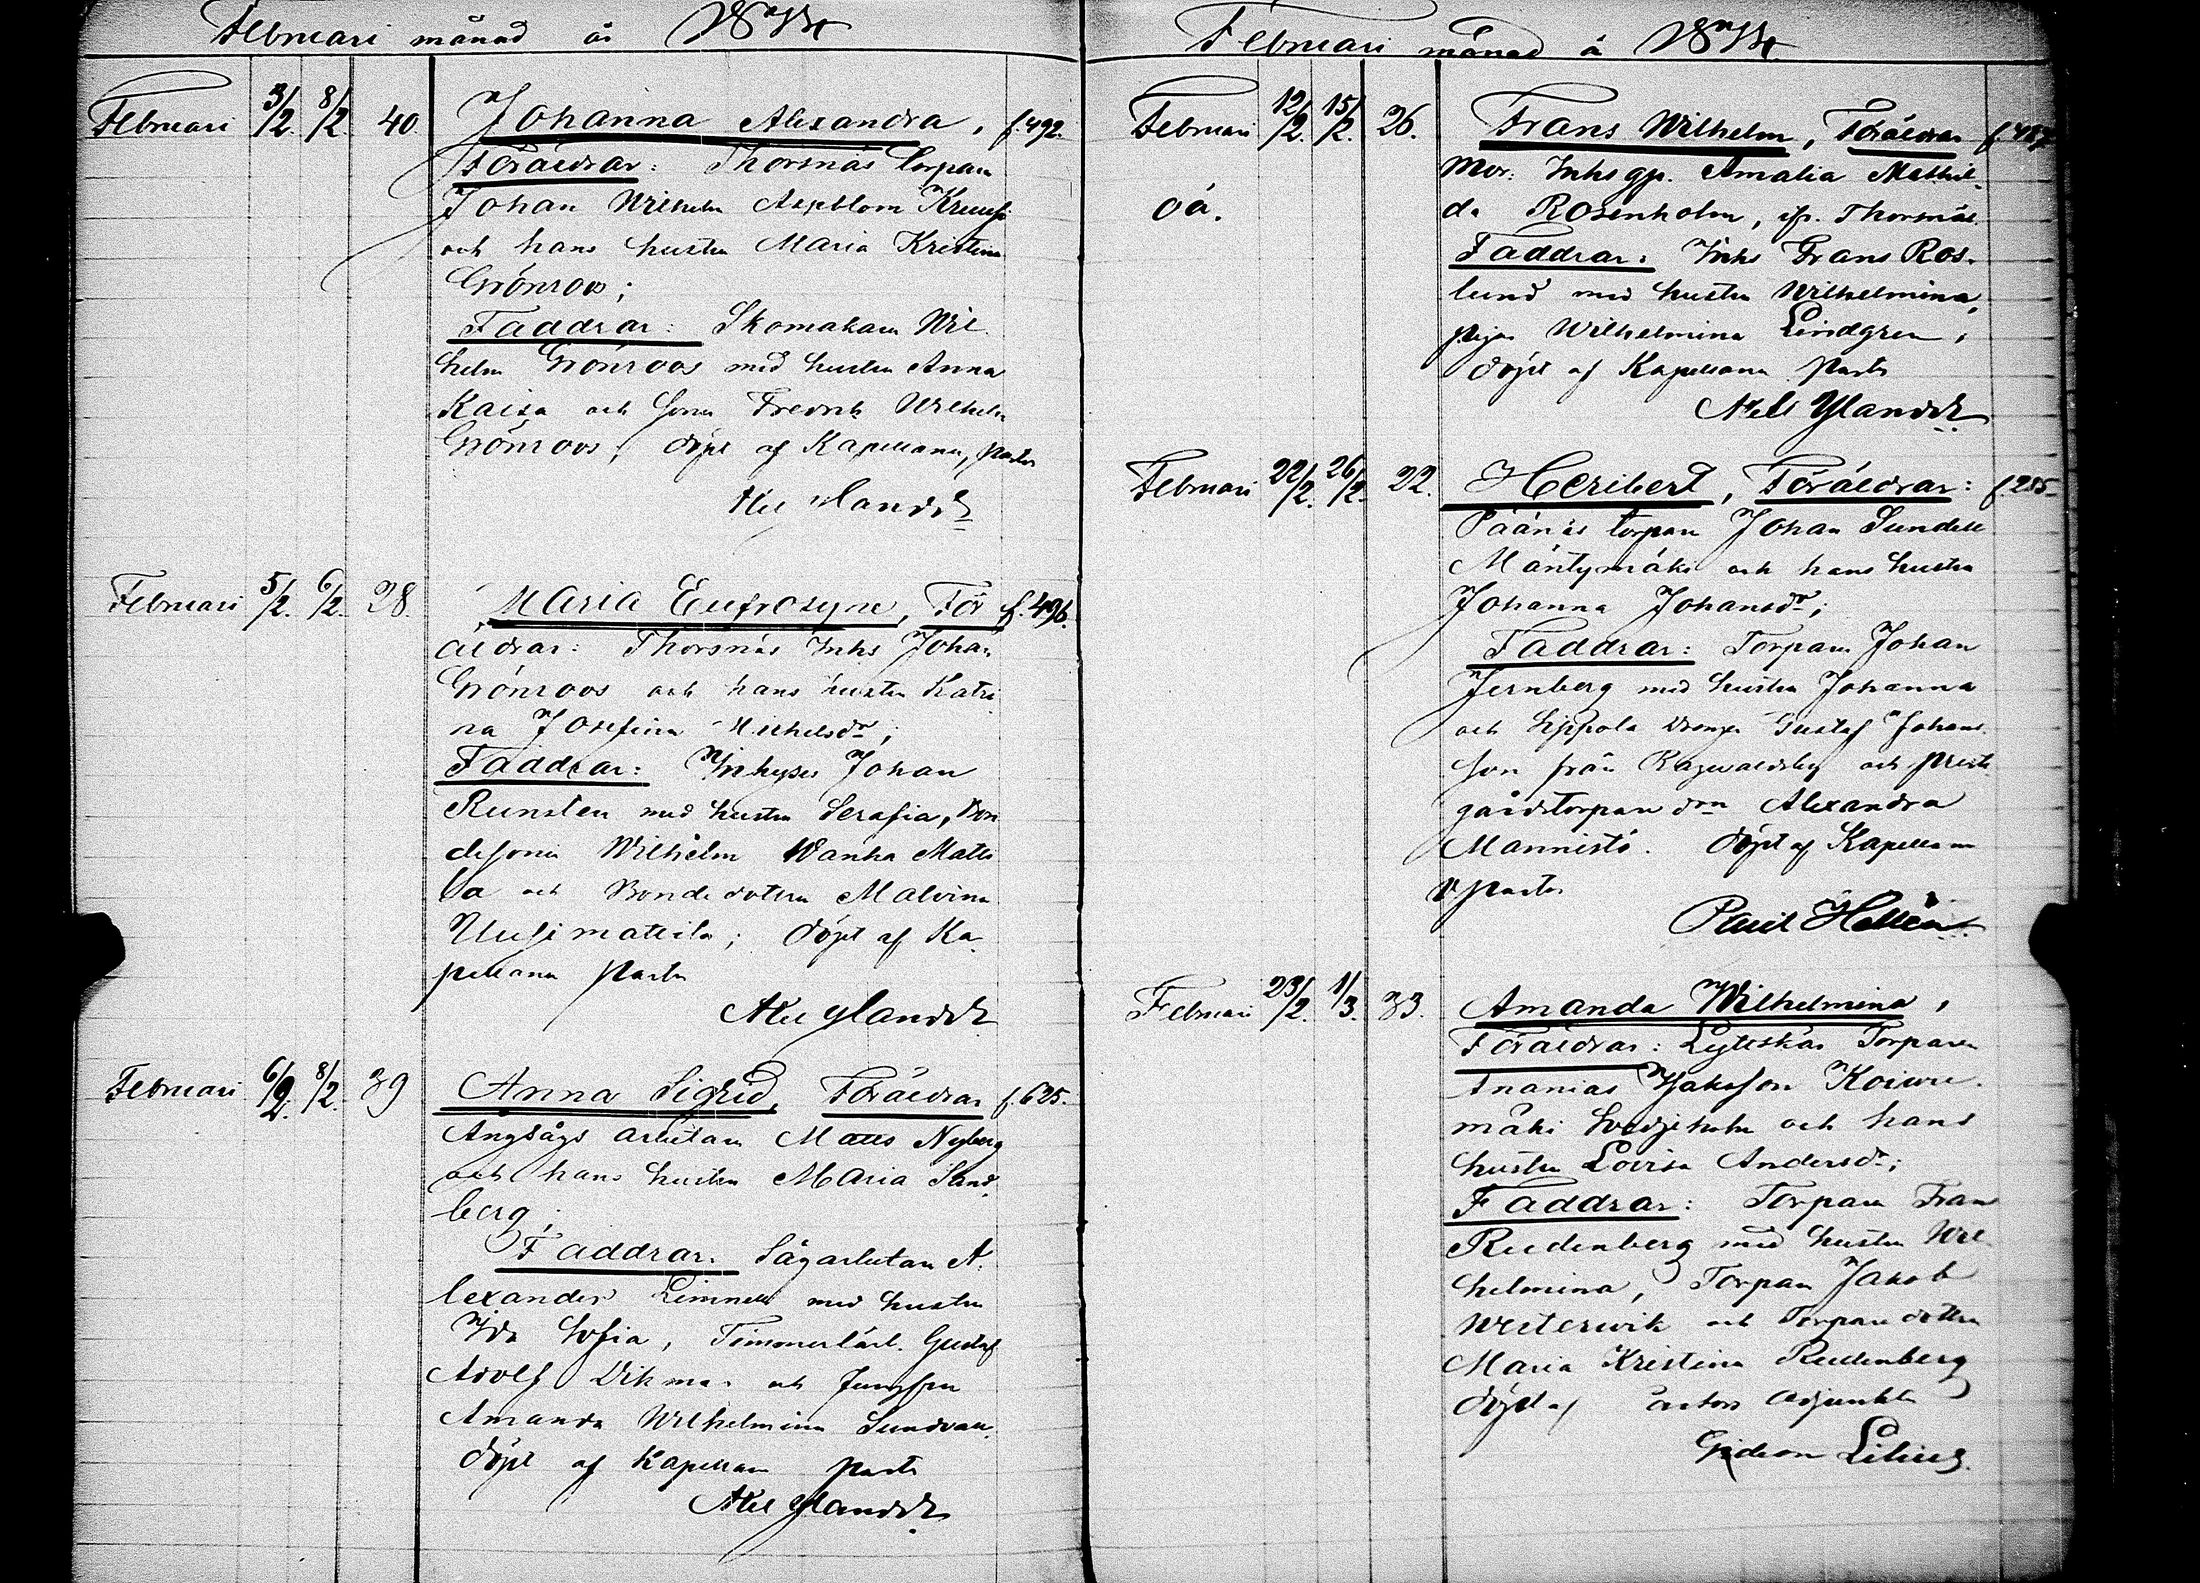 Februari månad år 1874
Februari 3/2. 8/2. 40. Johanna Alexandra, f. 492.
Föräldrar: Thorsnäs torparn
Johan Wilhelm Aspblom
och hans hustru Maria Kristina
Grönroos;
Faddrar: Skomakarn Wil
helm Grönroos med hustru Anna
Kaisa och sonen Fredrik Wilhelm
Grönroos; döpt af Kapellanen, pastor
Axel Ylander
Februari 5/2. 6/2. 28. Maria Eufrosyne, För f. 496.
äldrar: Thorsnäs Inhs Johan
Grönroos och hans hustru Katri
na Josefina Michelsdr;
Faddrar: Inhyses Johan
Runsten med hustru Serafia, Bon
desonen Wilhelm Wanha Matti
la och Bondedottern Malvina
Uusimattila; döpt af Ka
pellanen Pastor
Axel Ylander
Februari 6/2. 8/2. 39 Anna Sigrid, Föräldrar f. 625.
Ångsågs arbetarn Matts Nyberg
och hans hustru Maria Sand
berg;
Faddrar: Sågarbetarn A
lexander Limnell med hustru
Ida Sofia, Timmerkarl. Gustaf
Adolf Vikman och Jungfrun
Amanda Wilhelmina Sundvall
döpt af Kapellanen Pastor
Axel Ylander
Februari månad å 1874.
Februari 12/2. 15/2. 26. Frans Wilhelm, Föräldrar f. 487.
Mor: Inhsgp. Amalia Mathil
oä. da Rosenholm, ifr. Thorsnäs
Faddrar: Inhs Frans Ros
lund med hustru Wilhelmina,
pigan Wilhelmina Lindgren,
döpt af Kapellanen Pastor
Axel Ylander
Februari 22/2. 26/2. 22. Heribert, Föräldrar: f. 285.
Påänäs torparn Johan Sundell
Mäntymäki och hans hustru
Johanna Johansdr;
Faddrar: Torparn Johan
Jernberg med hustru Johanna
och Sippola Drengen Gustaf Johans
son från Ragwaldsby och prest
gårdstorpare drn Alexandra
Mannistö. döpt af Kapellanen
v pastor
Paul Hellén
Februari 23/2. 1/3. 33. Amanda Wilhelmina,
Föräldrar: Lyttskär Torparen
Ananias Jaksson Koiwu
mäki Södjeholm och hans
hustru Lovisa Andersdr;
Faddrar: Torparn Frans
Rudenberg med hustru Wil
helmina, Torparn Jakob
Westerwik och Torpare dottern
Maria Kristina Rudenberg
döpt af astors adjunkten
Gideon Lilius.